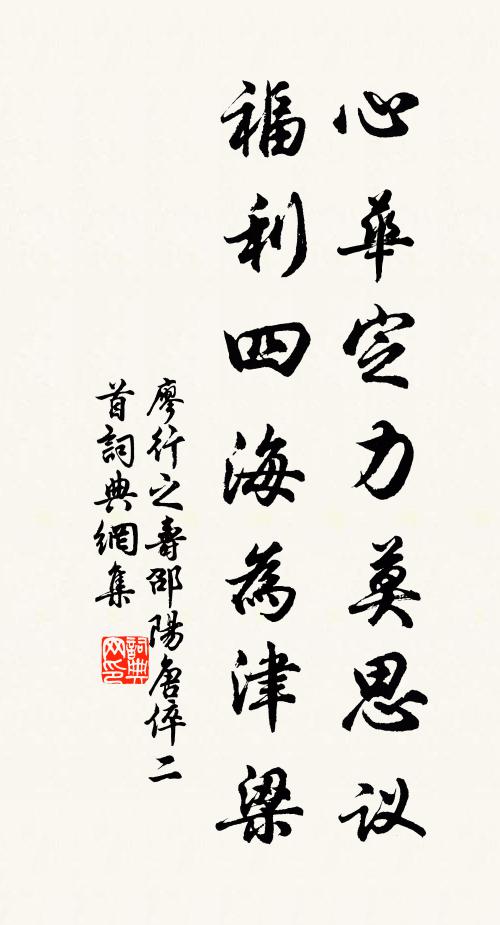 心華定力莫思议
福利四海為津梁
廖行之壽邵陽唐倅二
首詞典網集
詞典網印